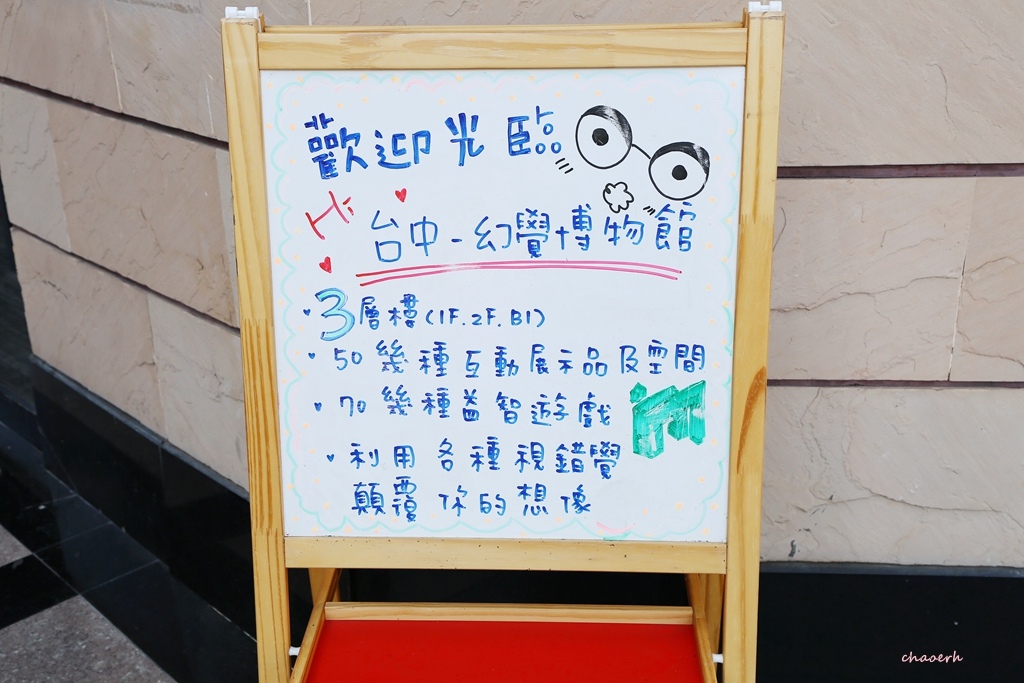 歡迎光臨
Hi
台中-幻覺博物館
3層樓(1F.2F.B1)
50幾種互動展示品及空間
70幾種益智遊戲
利用各種視錯覺
顛覆你的想像
chaoerh